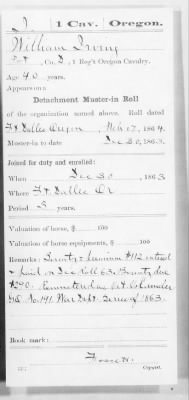 I. | 1 Cav. | Oregon.
William Irving
Pvt, Co. D, 1 Reg't Oregon Cavalry.
Age 40 years.
Appears on a
Detachment Muster-in Roll
of the organization named above. Roll dated
Ft Dalles Oregon Feb 17, 1864.
Muster-in to date Dec 30, 1863.
Joined for duty and enrolled:
When Dec 30, 1863
Where Ft. Dalles Or
Period 3 years.
Valuation of horse, $ 100
Valuation of horse equipments, $ 100
Remarks: Bounty & premium $112 entered
& paid on Dec Roll 63. Bounty due
$290. under
G.O. No. 191 War Dept. Series of 1863.
Book mark:
Copyist.